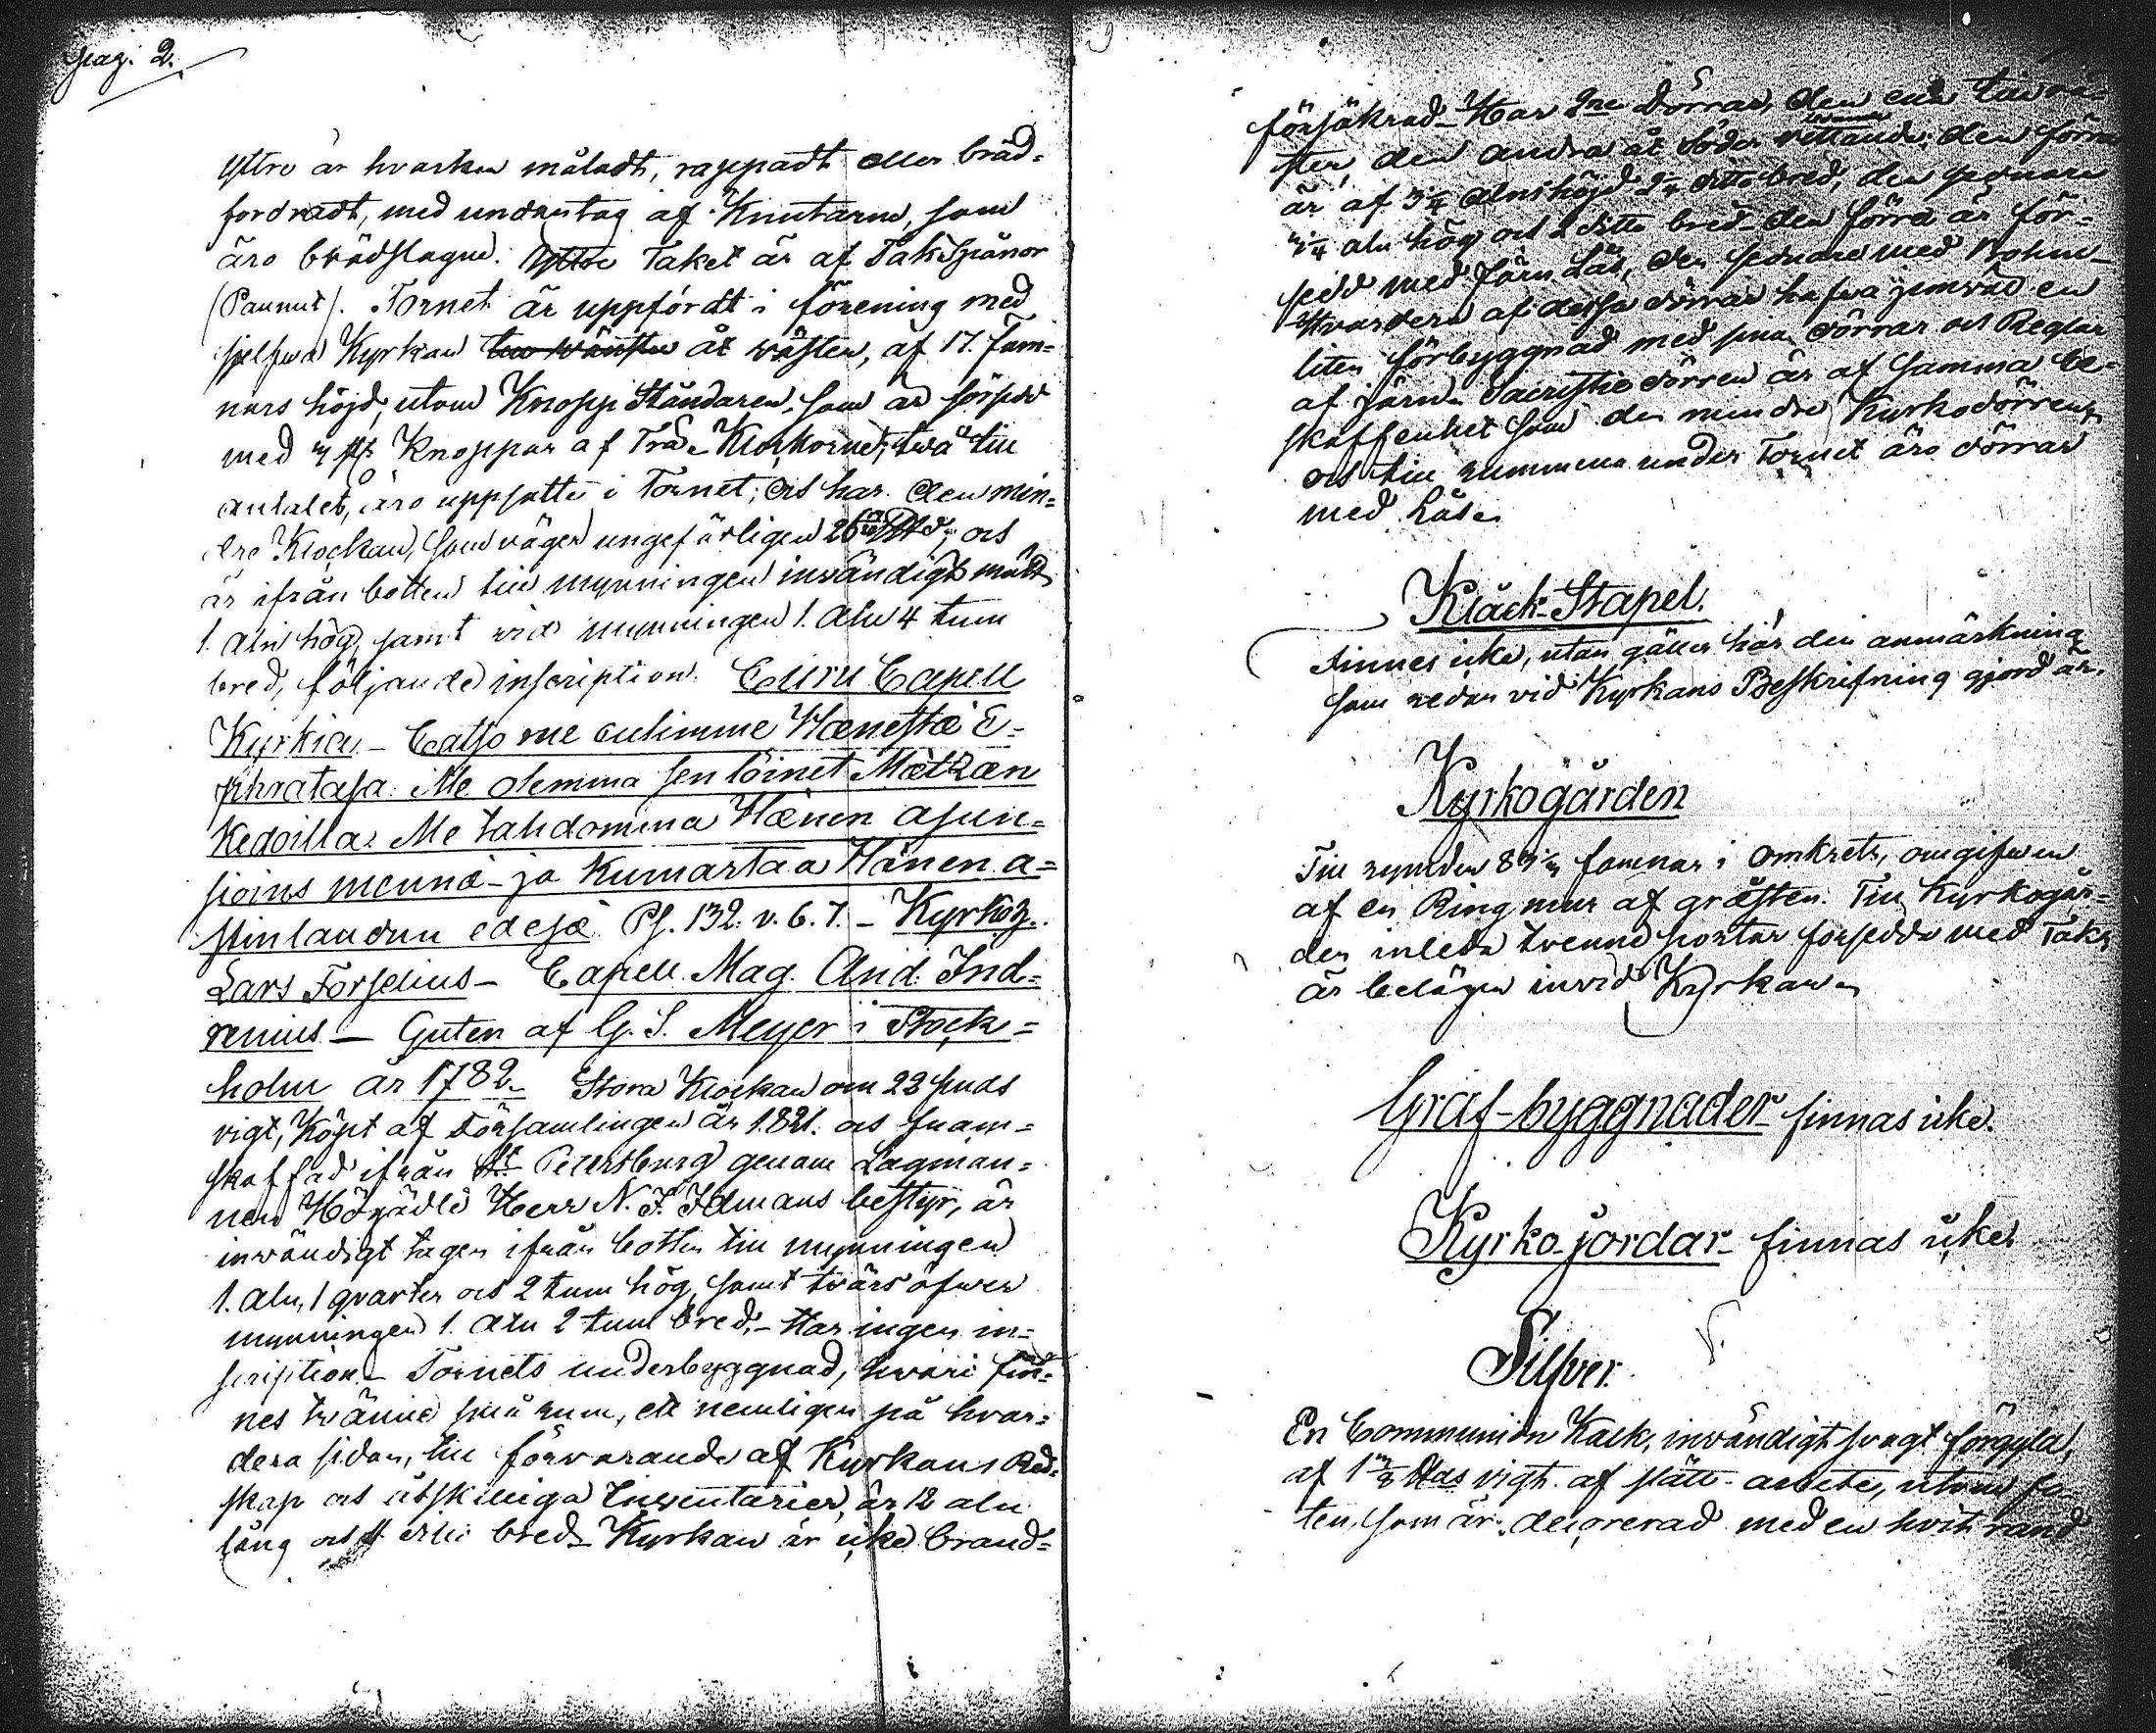 pag. 2.
yttre är hvarken måladt, rappadt eller bräd-
fordradt, med undantag af Knutarne, som
äro brädslagne. Yttre Taket är af Takspånor
(Pannut). Tornet är uppfördt i förening med
sjelfwa Kyrkan åt wästen, af 17. fam-
nars höjd, utom Knopp Ståndaren, som är försedd
med Knoppar af Träd. Klockorne, twå till
antalet, äro uppsatte i Tornet; och har den min-
dre Klockan, som väger ungefärligen 26 och
är ifrån botten till mynningen inwändigt mätt
1. aln hög, samt vid mynningen 1. aln 4 tum
bred, följande inscription. Euru Capell
Kyrkia - Catso me culimme Hænestæ E-
phratasa. Me olemma sen löinet Mætzæn
Kedoilla. Me tahdomma Hænen asun-
sioins mennä - ja Kumartaa Hänen a-
stinlaudan edesæ Ps. 132. v. 6. 7. - Kyrkoh.
Lars Forselius - Capell. Mag. And. Ind-
renius - Guten af G. S. Meyer i Stock-
holm år 1782. Stora Klockan om 22 puds
vigt, Köpt af Församlingen år 1821. och fram-
skaffad ifrån St Petersburg genom Lagman-
nen Högädle Herr N. F. Idmans bestyr, är
inwändigt tagen ifrån botten till mynningen
1. aln, 1 qvarter och 2 tum hög, samt twärs öfwer
mynningen 1. aln 2 tum bred. - Har ingen in-
scription - Tornets underbyggnad, hwari fin-
nes twänne små rum, ett nemligen på hvar-
dera sidan, till förwarande af Kyrkans Red-
skap och åtskilliga Inventarier, är 12 aln
lång och bred. Kyrkan är icke brand-
försäkrad - Har 2ne Dörrar, den ena till
ster, den andra åt Söder vettande; den förra
är af 3 1/4 alns höjd 2 1/4 ditto bred, den sednare
aln hög och 2 ditto bred - den förra är för-
sedd med Järn Lås, den sednare med
Hvardera af dessa dörrar hafwa jemwäl en
liten förbyggnad med sina dörrar och Reglar
af järn. Sacristie dörren är af samma be-
skaffenhet som den mindre Kyrkodörren
och till rummena under Tornet äro dörrar
med Lås.
Kläck-Stapel.
Finnes icke, utan gäller här den anmärkning
som redan vid Kyrkans Beskrifning gjord är.
Kyrkogården
Till rymden 83 1/2 famnar i omkrets, omgifwen
af en Ring mur af gråsten. Till Kyrkogår-
den inleda twenne portar försedde med Tak
är belägen invid Kyrkan.
Graf-byggnader finnas icke.
Kyrko-jordar finnas icke.
Silfver.
En Communion Kalk, inwändigt svagt förgyld,
af 1 vigt. af slätt-arbete, utom fo-
ten, som är decorerad med en hvit rand